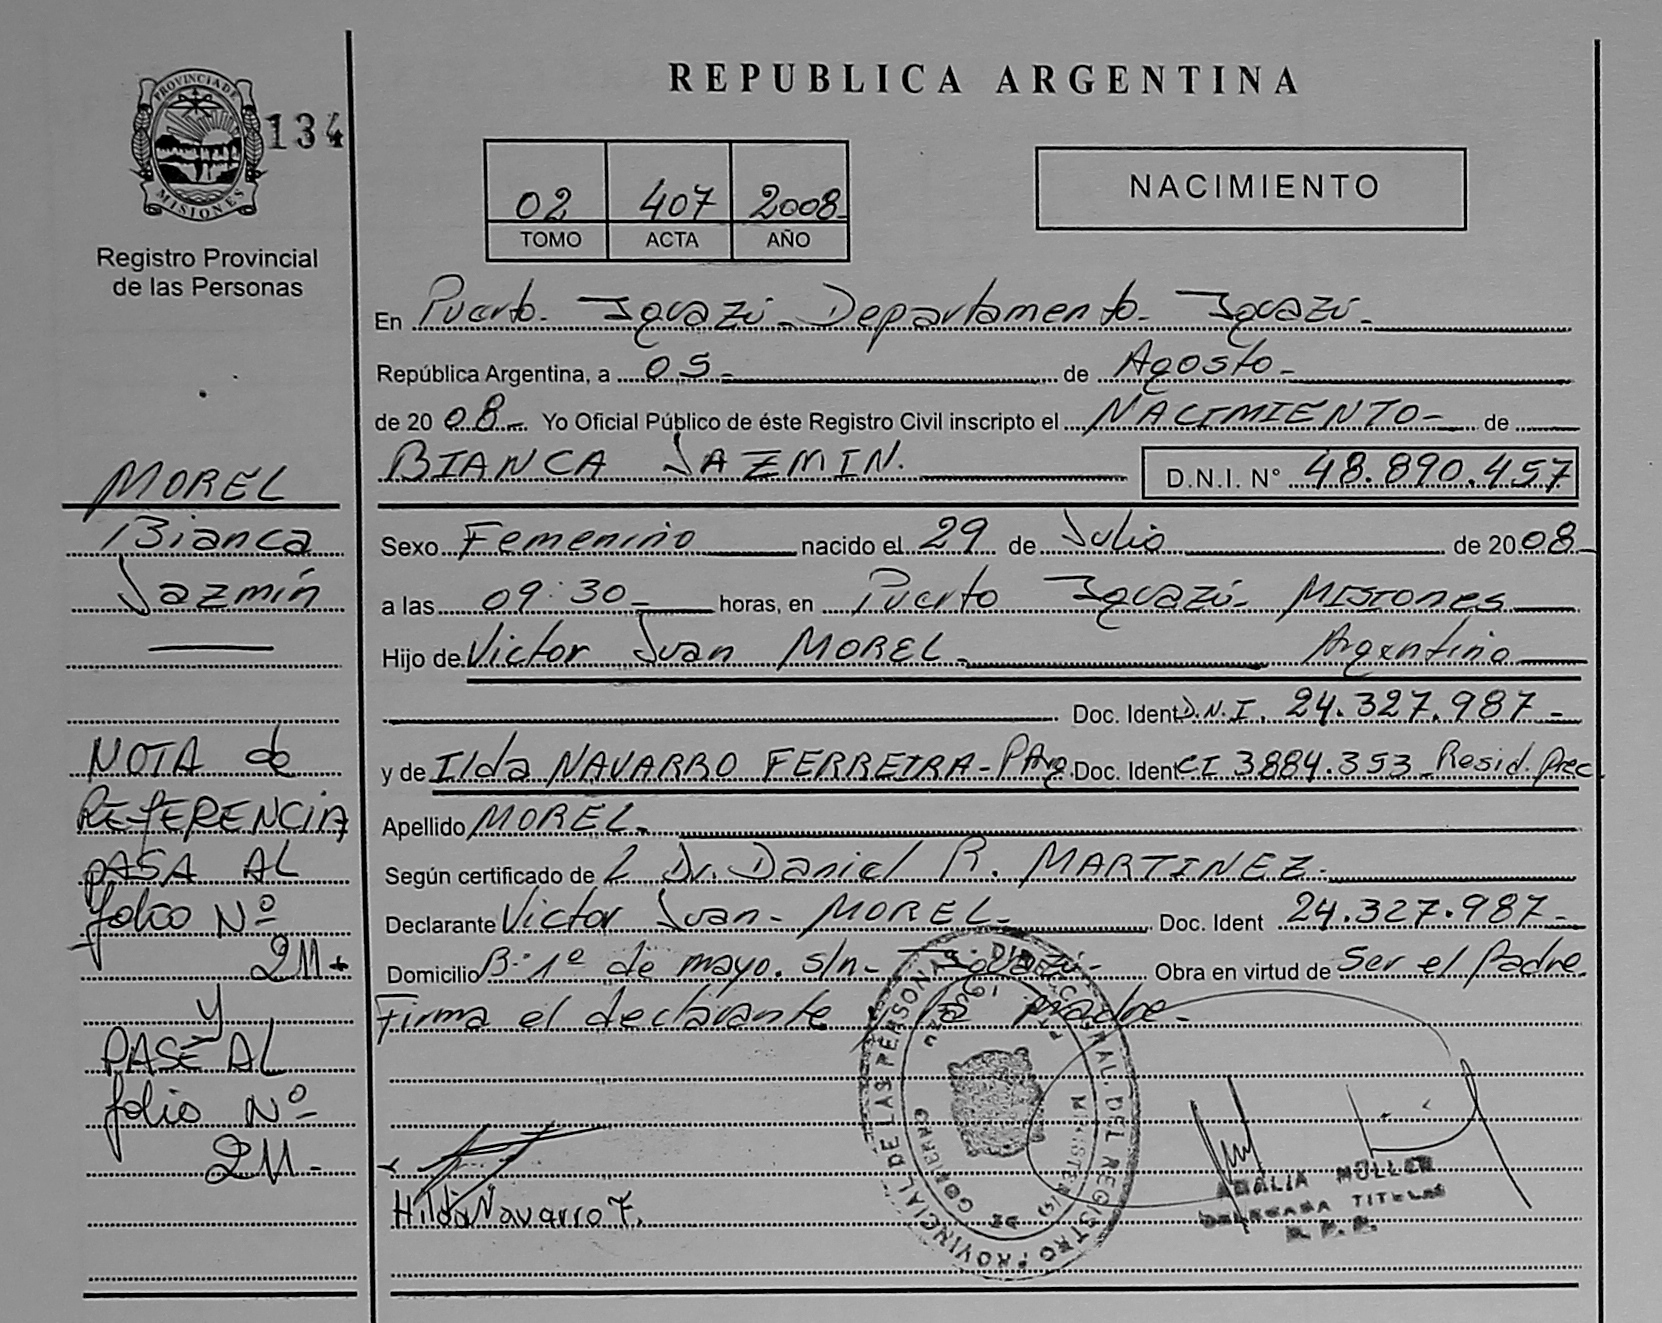 PROVINCIA DE
MISIONES
134
Registro Provincial
de las Personas
REPUBLICA ARGENTINA
02 407 2008
TOMO ACTA AÑO
NACIMIENTO
En Puerto - Iguazú - Departamento - Iguazú -
República Argentina, a 05 - de Agosto -
de 2008 - Yo Oficial Público de éste Registro Civil inscripto el NACIMIENTO - de
BIANCA JAZMIN. D.N.I. Nº 48.890.457
Sexo Femenino nacido el 29 de Julio de 2008 -
a las 09:30 - horas, en Puerto Iguazú - Misiones
Hijo de Victor Juan MOREL - Argentino
Doc. Ident D.N.I. 24.327.987 -
y de Ilda NAVARRO FERREIRA - PArg. Doc. Ident CI 3884.353 - Resid. Prec.
Apellido MOREL -
Según certificado de Dr. Daniel R. MARTINEZ -
Declarante Victor Juan - MOREL - Doc. Ident 24.327.987 -
Domicilio B- 1º de mayo. s/n - Iguazú - Obra en virtud de Ser el Padre.
Firma el declarante y la madre -
MOREL
Bianca
Jazmín
NOTA de
REFERENCIA
PASA AL
folio Nº
211
y
PASE AL
folio Nº
211 -
Hilda Navarro F.
DIRECC GRAL. DEL REGISTRO PROVINCIAL DE LAS PERSONAS
ADALIA MULLER
DELEGADA TITULAR
R. P. P.